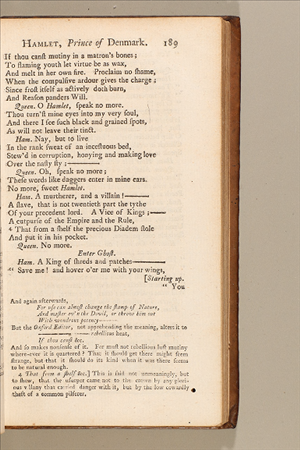 HAMLET, Prince of Denmark. 189
If thou canst mutiny in a matron's bones;
To flaming youth let virtue be as wax,
And melt in her own fire. Proclaim no shame,
When the compulsive ardour gives the charge;
Since frost itself as actively doth burn,
And Reason panders Will.
Queen. O Hamlet, speak no more.
Thou turn'st mine eyes into my very soul,
And there I see such black and grained spots,
As will not leave their tinct.
Ham. Nay, but to live
In the rank sweat of an incestuous bed,
Stew'd in corruption, honying and making love
Over the nasty sty;————
Queen. Oh, speak no more;
These words like daggers enter in mine ears.
No more, sweet Hamlet.
Ham. A murtherer, and a villain!————
A slave, that is not twentieth part the tythe
Of your precedent lord. A Vice of Kings;——
A cutpurse of the Empire and the Rule,
4 That from a shelf the precious Diadem stole
And put it in his pocket.
Queen. No more.
Enter Ghost.
Ham. A King of shreds and patches————
“ Save me! and hover o'er me with your wings,
[Starting up.
“ You
And again afterwards,
For use can almost change the stamp of Nature,
And master ev'n the Devil, or throw him out
With wondrous potency——
But the Oxford Editor, not apprehending the meaning, alters it to
———— rebellious heat,
If thou canst &c.
And so makes nonsense of it. For must not rebellious lust mutiny
where-ever it is quartered? That it should get there might seem
strange, but that it should do its kind when it was there seems
to be natural enough.
4 That from a shelf &c.] This is said not unmeaningly, but
to shew, that the usurper came not to the crown by any glori-
ous villany that carried danger with it, but by the low cowardly
theft of a common pilferer.